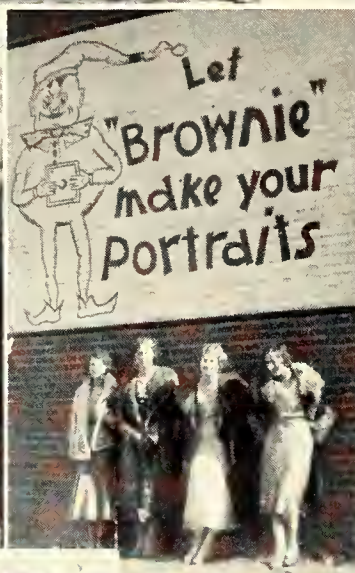 Let
"Brownie"
make your
portraits